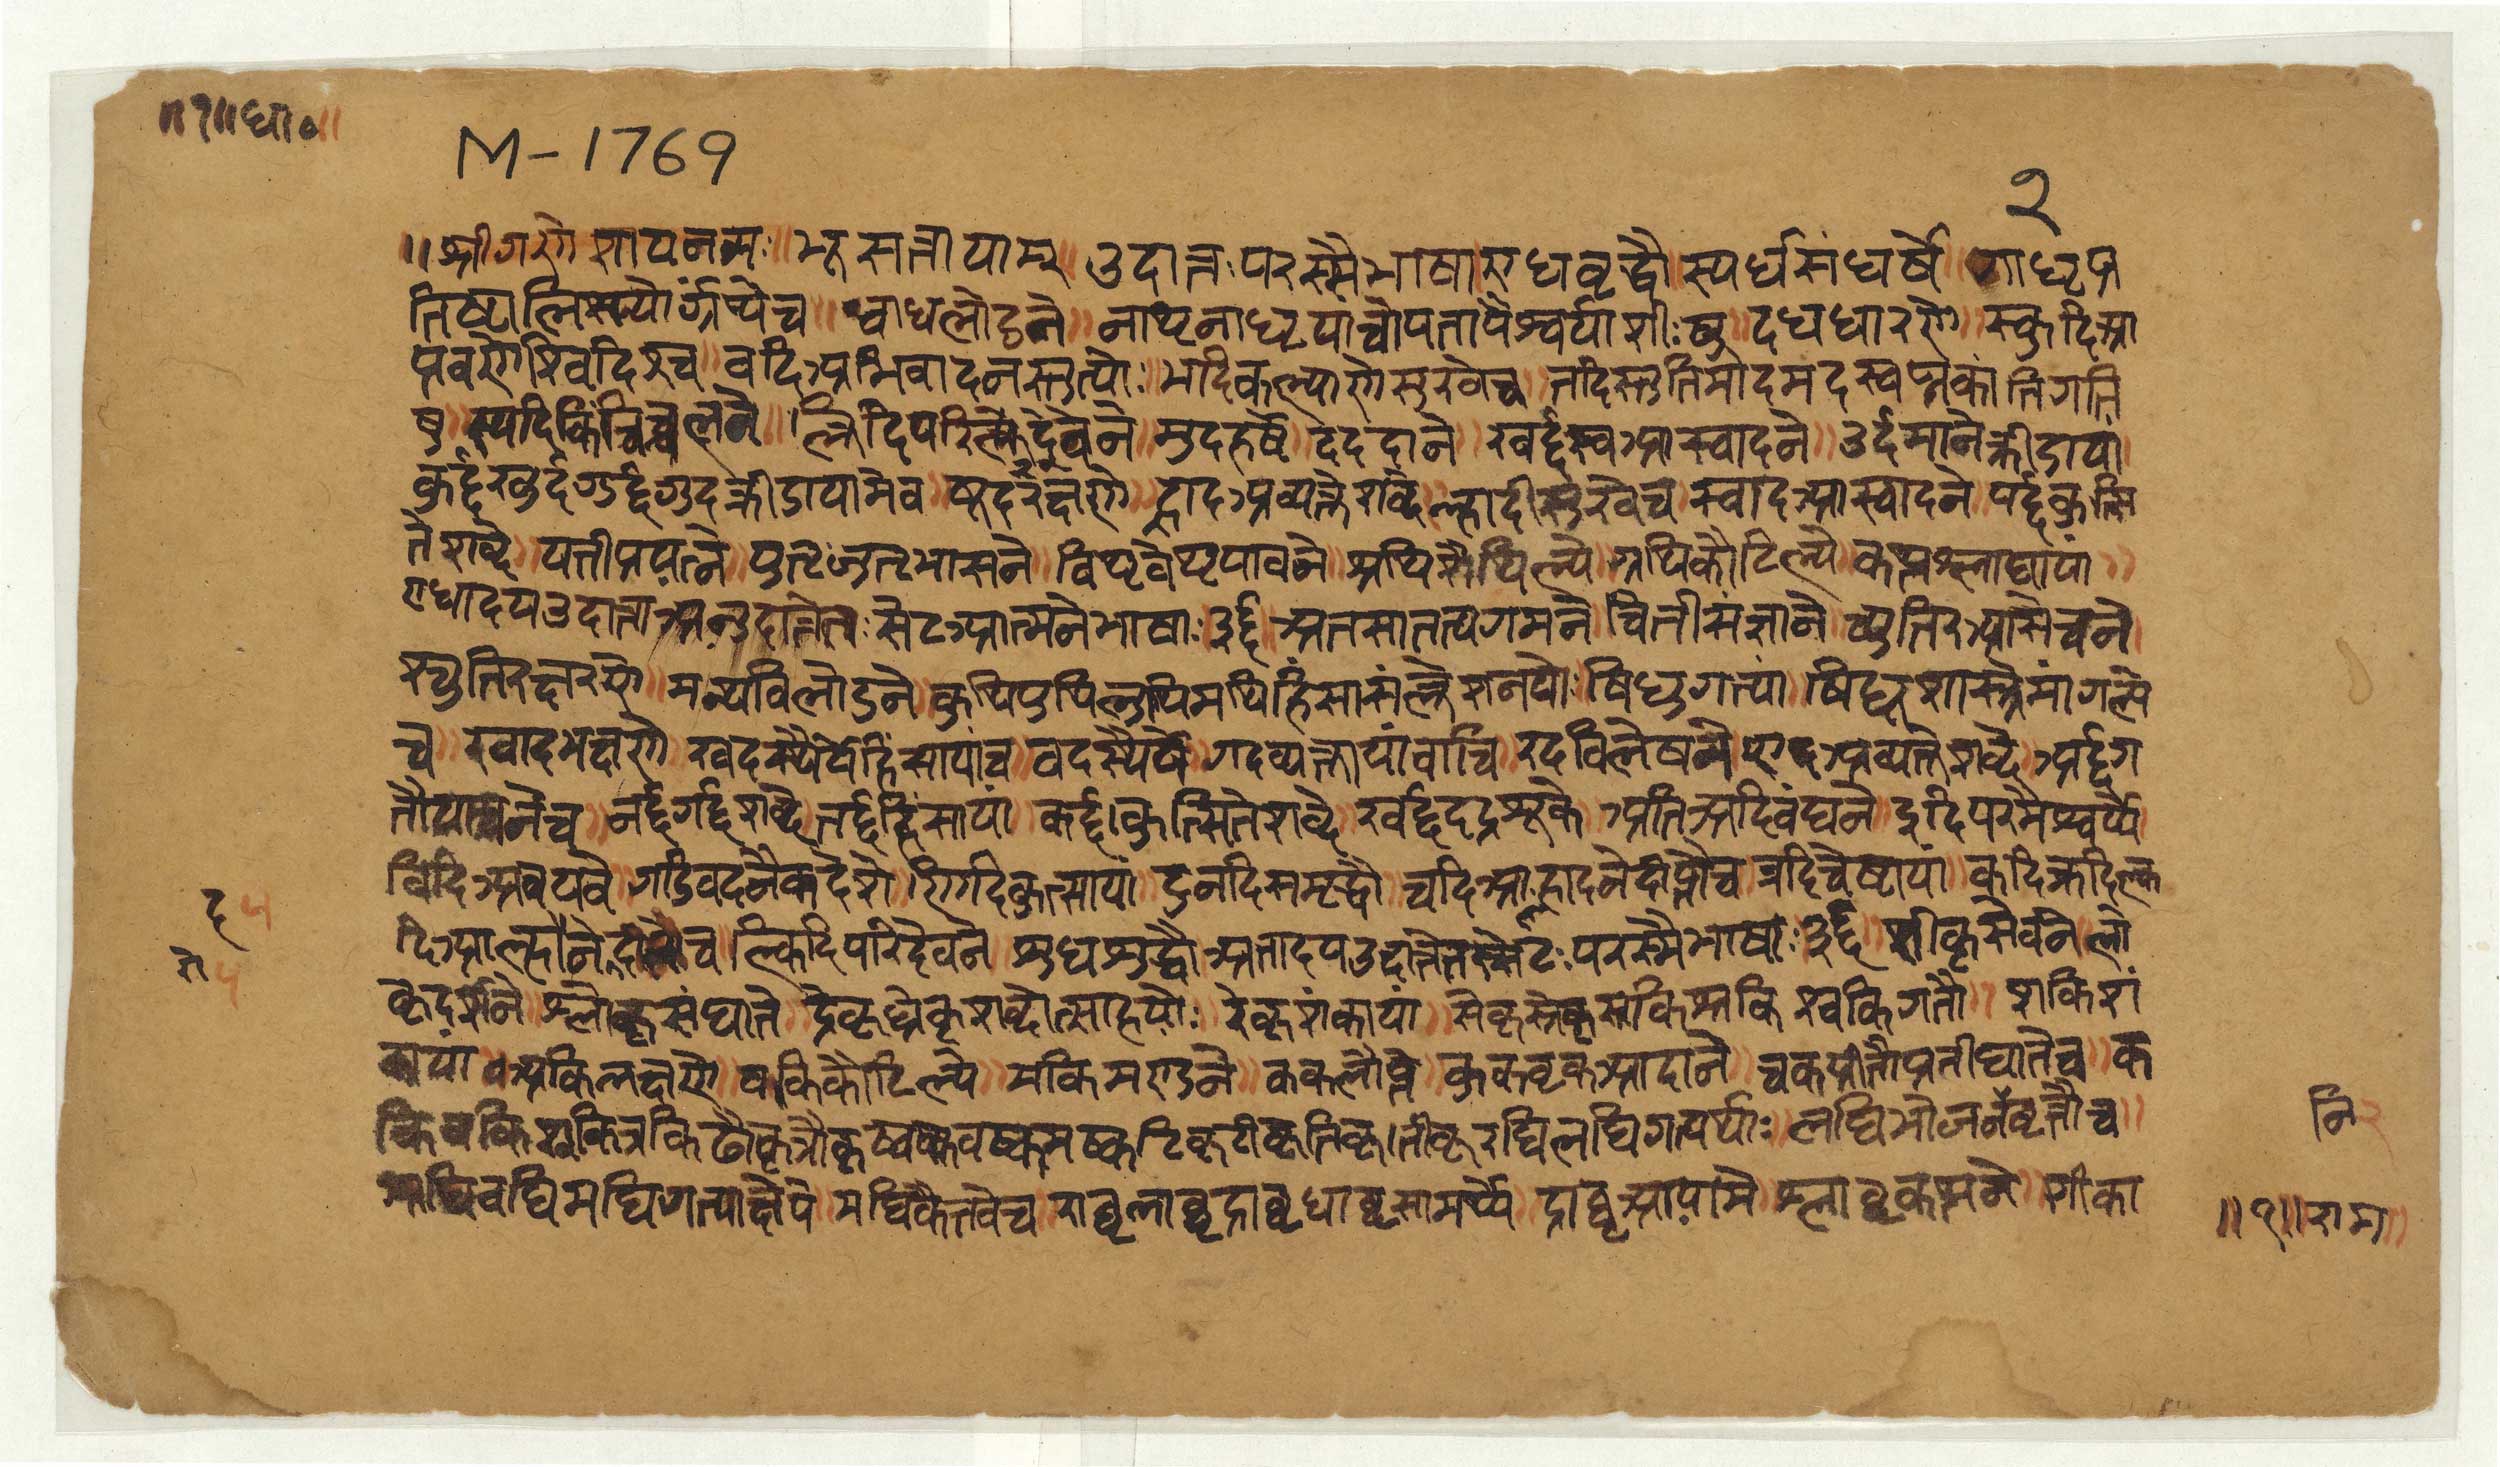 ॥१॥धा०॥
M-1769
२
॥श्रीगणेशायनमः॥भूसत्तायाम् उदात्तःपरस्मैभाषा॥एधवृद्धौ॥स्पर्धसंघर्षे॥गाधृप्र
तिष्टालिप्सयोर्ग्रंथेच॥बाधृलोडने॥नाथृनाधृयाञ्चोपतापैश्वर्याशीःषु॥दधधारणे॥स्कुदिआ
प्रवणे॥श्विदिश्वै॥वदिअभिवादनस्तुत्योः॥भदिकल्याणेसुखेच॥मदिस्तुतिमोदमदस्वप्नकांतिगति
षु॥स्पदिकिंचिच्चलने॥क्लिदिपरिदेवने॥मुदहर्षे॥दददाने॥स्वर्द्दस्वदआस्वादने॥उर्दमानेक्रीडायां
कुर्द्दखुर्दगुर्द्दगुदक्रीडायामेव॥षूदक्षरणे॥ह्रादअव्यक्तेशब्दे॥ल्हादीसुखेच॥स्वादआस्वादने॥पर्द्दकुत्सि
तेशब्दे॥यतीप्रयत्ने॥युतृजुतृभासने॥विथृवेथृयाचने॥श्रथिशैथिल्ये॥ग्रथिकौटिल्ये॥कत्थश्लाघायां॥
एधादयउदात्ताअनुदात्तेतःसेटआत्मनेभाषाः॥३६॥अतसातत्यगमने॥चितीसंज्ञाने॥च्युतिर्आसेचने
श्च्युतिर्क्षरणे॥मन्थविलोडने॥कुथिपुथिलुथिमथिहिंसासंक्लेशनयोः॥षिधुगत्यां॥षिधूशास्त्रेमांगल्ये
च॥खादभक्षणे॥खदस्थैर्येहिंसायांच॥वदस्थैर्ये॥गदव्यक्तायांवाचि॥रदविलेखने॥णदअव्यक्तेशब्दे॥अर्द्दग
तौयाचनेच॥नर्द्दगर्द्दशब्दे॥तर्द्दहिंसायां॥कर्द्दकुत्सितेशब्दे॥खर्द्ददंदशूके॥अतिअदिबंधने॥इदिपरमैश्वर्ये
बिदिअवयवे॥गडिवदनैकदेशे॥णिदिकुत्सायां॥टुनदिसमृद्धौ॥चदिआह्लादनेदीप्तौच॥त्रदिचेष्टायां॥कदिक्रदिक्ल
दिआह्वानेरोदनेच॥क्लिदिपरिदेवने॥शुधशुद्धौ॥अतादयउदात्तेतःसेटःपरस्मैभाषाः॥३६॥शीकृसेचने॥लो
कृदर्शने॥श्लोकृसंघाते॥द्रेकृध्रेकृशब्दोत्साहयोः॥रेकृशंकायां॥सेकृस्रेकृस्रकिश्रकिश्लकिगतौ॥शकिशं
कायां॥अकिलक्षणे॥वकिकौटिल्ये॥मकिमण्डने॥ककलौल्ये॥कुकवृकआदाने॥चकतृप्तौप्रतीघातेच॥क
किवकिश्वकित्रकिढौकृत्रौकृष्वष्कवष्कमष्कटिकृटीकृतिकृतीकृरघिलघिगत्यर्थाः॥लघिभोजननिवृत्तौच॥
अघिवघिमघिगत्याक्षेपे॥मघिकैतवेच॥राघृलाघृद्राघृध्राघृसामर्थ्ये॥द्राघृआयामे॥श्लाघृकत्थने॥शीका
द५
न५
नि२
॥१॥राम॥